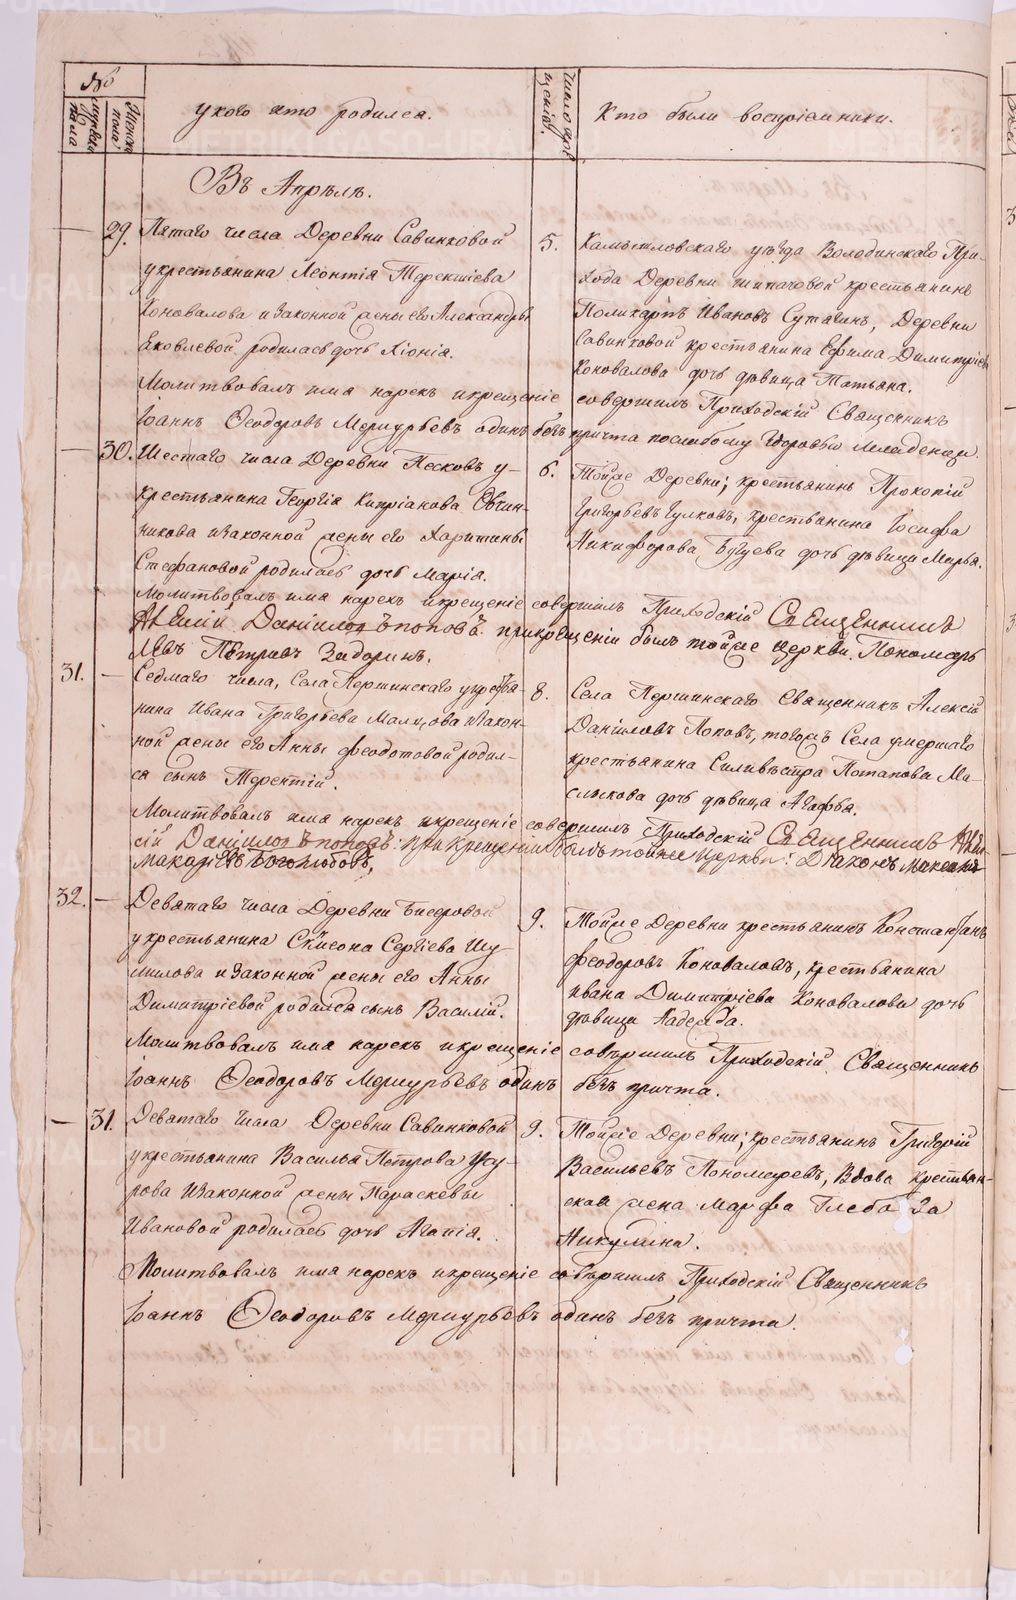 №
мужеска пола
женска пола
У кого кто родился.
число крещения.
Кто были восприемники.
Въ Апрѣлѣ.
29. Пятаго числа Деревни Савинковой
у крестьянина Леонтія
Коновалова и законной жены его Александры
Яковлевой родилась дочь Хіонія.
5. Камышловскаго уѣзда Володинскаго При-
хода Деревни крестьянинъ
Поликарпъ Ивановъ Сутягинъ, Деревни
Савинковой крестьянина Ефима Димитріева
Коновалова дочь дѣвица Татьяна.
Молитвовалъ имя нарекъ и крещеніе совершилъ Приходскій Священникъ
Іоаннъ Ѳеодоровъ Меркурьевъ одинъ безъ причта по слабому здоровью младенца.
30. Шестаго числа Деревни Песковъ у
крестьянина Георгія Кипріанова Овчин-
никова и законной жены его Харитины
Стефановой родилась дочь Марія.
6. Тойже Деревни; крестьянинъ Прокопій
Григорьевъ Гулковъ, крестьянина Іосифа
Никифорова дочь дѣвица Марья.
Молитвовалъ имя нарекъ и крещеніе совершилъ Приходскій Священникъ
Алексій Даніиловъ Поповъ. при крещеніи былъ тойже церкви. Пономарь
Левъ Петровъ Задоринъ.
31. Седмаго числа, Села Першинскаго у кресть-
нина Ивана Григорьева Мальцова и закон-
ной жены его Анны Феодотовой родил-
ся сынъ Терентій.
8. Села Першинскаго Священникъ Алексій
Даніиловъ Поповъ, тогожъ Села умершаго
крестьянина Силивѣстра Потапова Ма-
слыкова дочь дѣвица Агафья.
Молитвовалъ имя нарекъ и крещеніе совершилъ Приходскій Священникъ Алек-
сій Даніиловъ Поповъ: при крещеніи былъ тойже Церкви: Діаконъ
Макаріевъ Боголюбовъ,
32. Девятаго числа Деревни Бисеровой
у крестьянина Симеона Сергіева Шу-
милова и законной жены его Анны
Димитріевой родился сынъ Василій.
9. Тойже Деревни крестьянинъ Константинъ
Феодоровъ Коноваловъ, крестьянина
Ивана Димитріева Коновалова дочь
дѣвица Надежда.
Молитвовалъ имя нарекъ и крещеніе совершилъ Приходскій Священникъ
Іоаннъ Ѳеодоровъ Меркурьевъ одинъ безъ причта.
31. Девятаго числа Деревни Савинковой
у крестьянина Василья Петрова
и законной жены Параскевы
Ивановой родилась дочь Агапія.
9. Тойже Деревни; крестьянинъ Григорій
Васильевъ Пономаревъ, Вдова крестьян-
ская жена Марфа Глебова
Никулина.
Молитвовалъ имя нарекъ и крещеніе совершилъ Приходскій Священникъ
Іоаннъ Ѳеодоровъ Меркурьевъ одинъ безъ причта.
METRIKI.GASO-URAL.RU